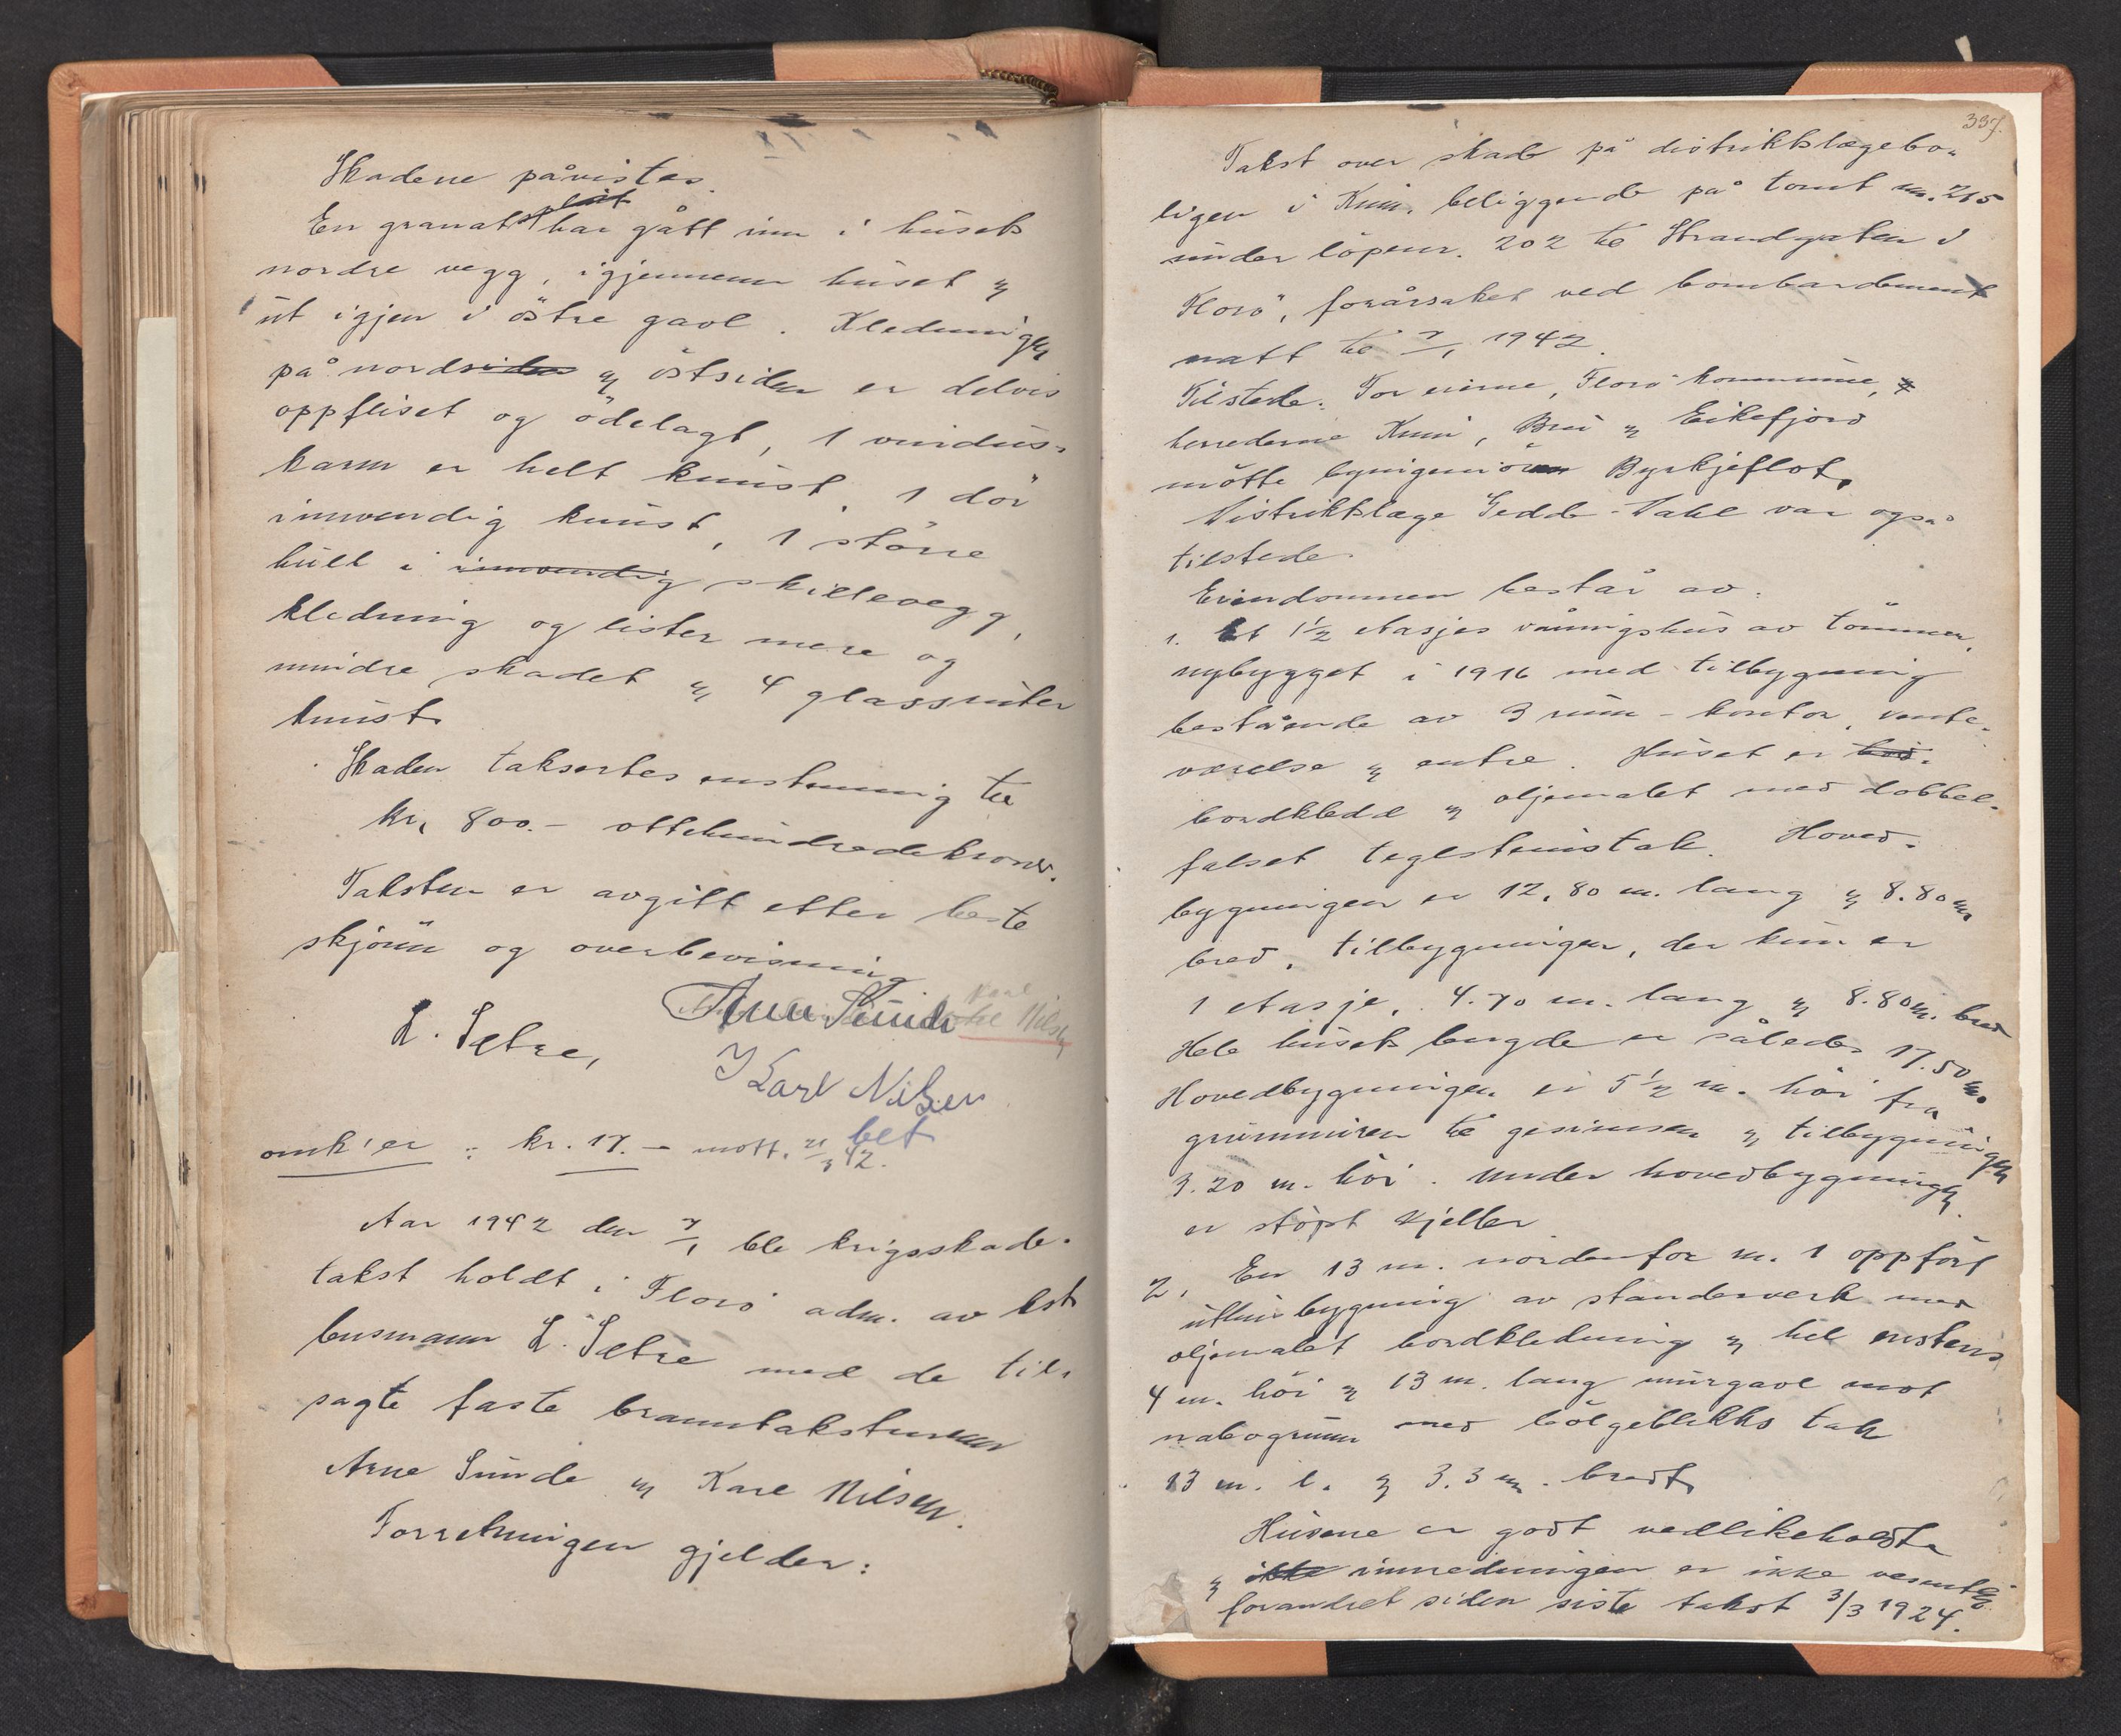 Skadene påvistes.
En granatsplint har gått inn i husets
nordre vegg, igjennem huset og
ut igjen i östre gavl. Kledningen
på nordsiden og östsiden er delvis
oppfliset og ödelagt, 1 vindus-
karm er helt knust, 1 dör
innvendig knust, 1 större
hull i innvendig skillevegg,
kledning og lister mere og
mindre skadet og 4 glassruter
knust.
Skaden taksertes enstemmig til
kr. 800.- ottehundredekroner.
Taksten er avgitt etter beste
skjönn og overbevisning
L. Sætre, Arne Sunde Karl Nilsen
Karl Nilsen
omk'er : kr. 17.- mott. 21/3 42. bet
Aar 1942 den 7/1 ble krigsskade-
takst holdt i Florö adm. av lst
lensmann L. Sætre med de til-
sagte faste branntakstmenn
Arne Sunde og Karl Nilsen.
Forretningen gjelder:
337.
Takst over skade på distriktslægebo-
ligen i Kinn, beliggende på tomt nr. 215
under löpenr. 202 til Strandgaten i
Florö, forårsaket ved bombardement
natt til 7/1 1942.
Tilstede: For eierne, Florö kommune, og
herrederne Kinn, Bru og Eikefjord
mötte byingeniören Byrkjeflot.
Distriktslæge Gedde-Dahl var også
tilstede.
Eiendommen består av:
1. Et 1½ etasjes våningshus av tömmer,
nybygget i 1916 med tilbygning
bestående av 3 rum - kontor, vente-
værelse og entre. Huset er bord-
bordkledd og oljemalet med dobbel-
falset teglstenstak. Hoved-
bygningen er 12,80 m. lang og 8.80 m.
bred, tilbygningen, der kun er
1 etasje, 4.70 m. lang og 8.80 m. bred
Hele husets lengde er således 17.50 m.
Hovedbygningen er 5½ m. höi fra
grunnmuren til gesimsen og tilbygningen
3.20 m. höi. Under hovedbygningen
er stöpt kjeller
2. En 13 m. nordenfor nr. 1 oppfört
uthusbygning av standerverk med
oljemalet bordkledning og hel enstens
4 m. höi og 13 m. lang murgavl mot
nabogrunn med bölgeblikks tak
13 m. l. og 3.3 m. bredt.
Husene er godt vedlikeholdte
og ikke innredningen er ikke vesentlig
forandret siden siste takst 3/3 1924.